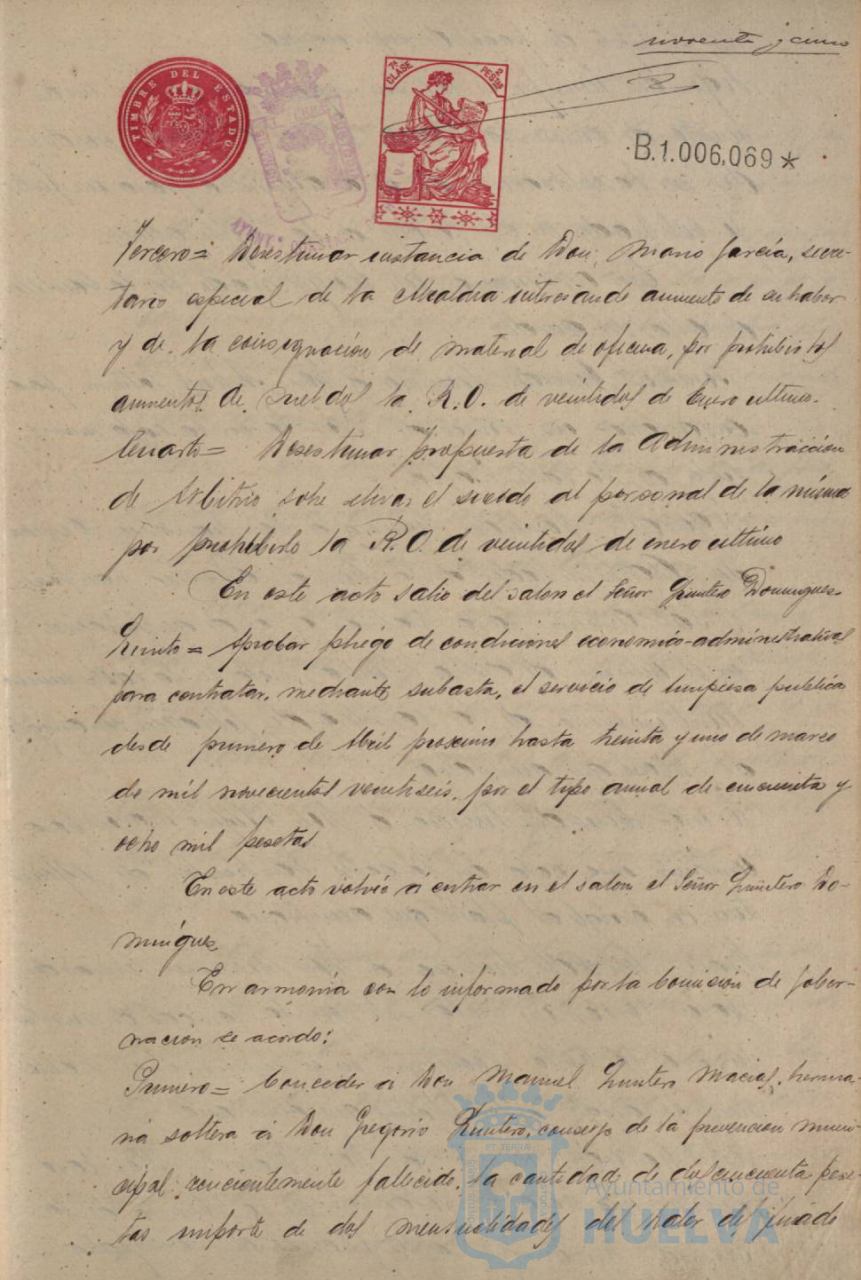 noventa y cinco
TIMBRE DEL ESTADO
7ª CLASE
2 PESTAS
B.1.006,069*
Tercero= Desestimar instancia de Don Mario García, secre-
tario especial de la Alcaldía interesando aumento de su haber
y de la consignación de material de oficina, por prohibir los
aumentos de sueldos la R.O. de veintidos de Enero ultimo.
Cuarto= Desestimar propuesta de la Administraccion
de Arbitrios sobre elevar el sueldo al personal de la misma
por prohibirlo la R.O. de veintidos de enero ultimo
En este acto salio del salon el Señor Quintero Dominguez
Quinto= Aprobar pliego de condiciones economico-administrativas
para contratar, mediante subasta, el servicio de limpiesa publica
desde primero de Abril proximo hasta treinta y uno de marzo
de mil novecientos veintiseis, por el tipo anual de cincuenta y
ocho mil pesetas
En este acto volvió á entrar en el salon el Señor Quintero Do-
minguez
En armonía con lo informado por la Comisión de Gober-
nacion se acordo:
Primero= Conceder á Don Manuel Quintero Macias, herma-
na soltera á Don Gregorio Quintero, conserje de la prevencion muni-
cipal recientemente fallecido, la cantidad de pese-
tas importe de dos mensualidades del haber del finado
Ayuntamiento de
HUELVA